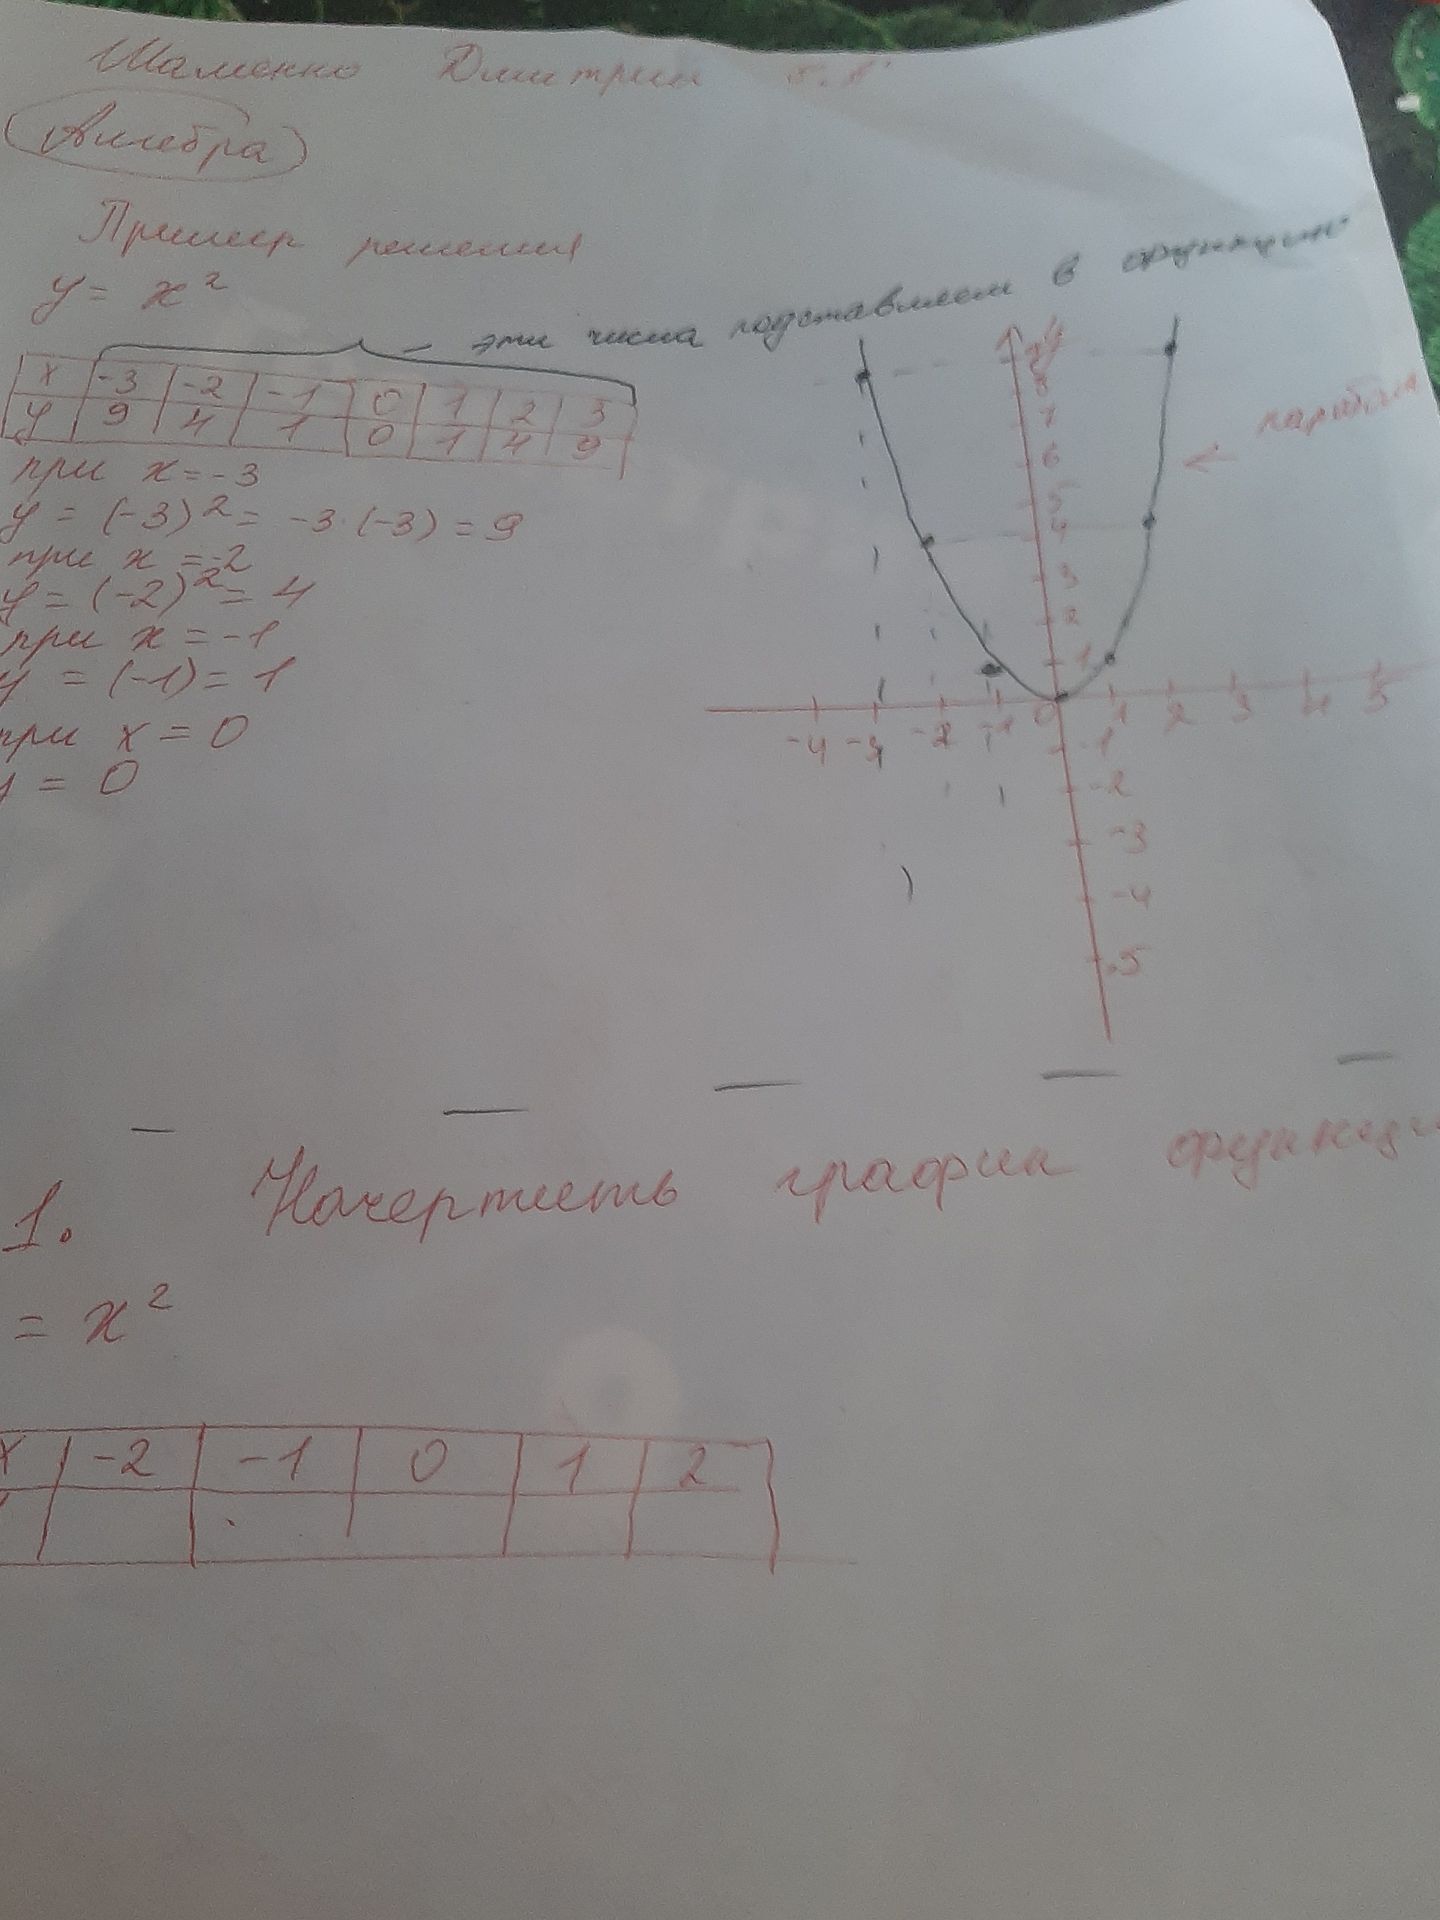 Шаменко Дмитрий
Алгебра
Пример решения
y = x²
– эти числа подставляем в функцию
x -3 -2 -1 0 1 2 3
y 9 4 1 0 1 4 9
при x = -3
y = (-3)² = -3·(-3) = 9
при x = -2
y = (-2)² = 4
при x = -1
y = (-1) = 1
при x = 0
y = 0
y
9
8
7
6
5
4
3
2
1
парабола
-4 -3 -2 -1 0 1 2 3 4 5
-1
-2
-3
-4
-5
1. Начертить график функции
= x²
x -2 -1 0 1 2